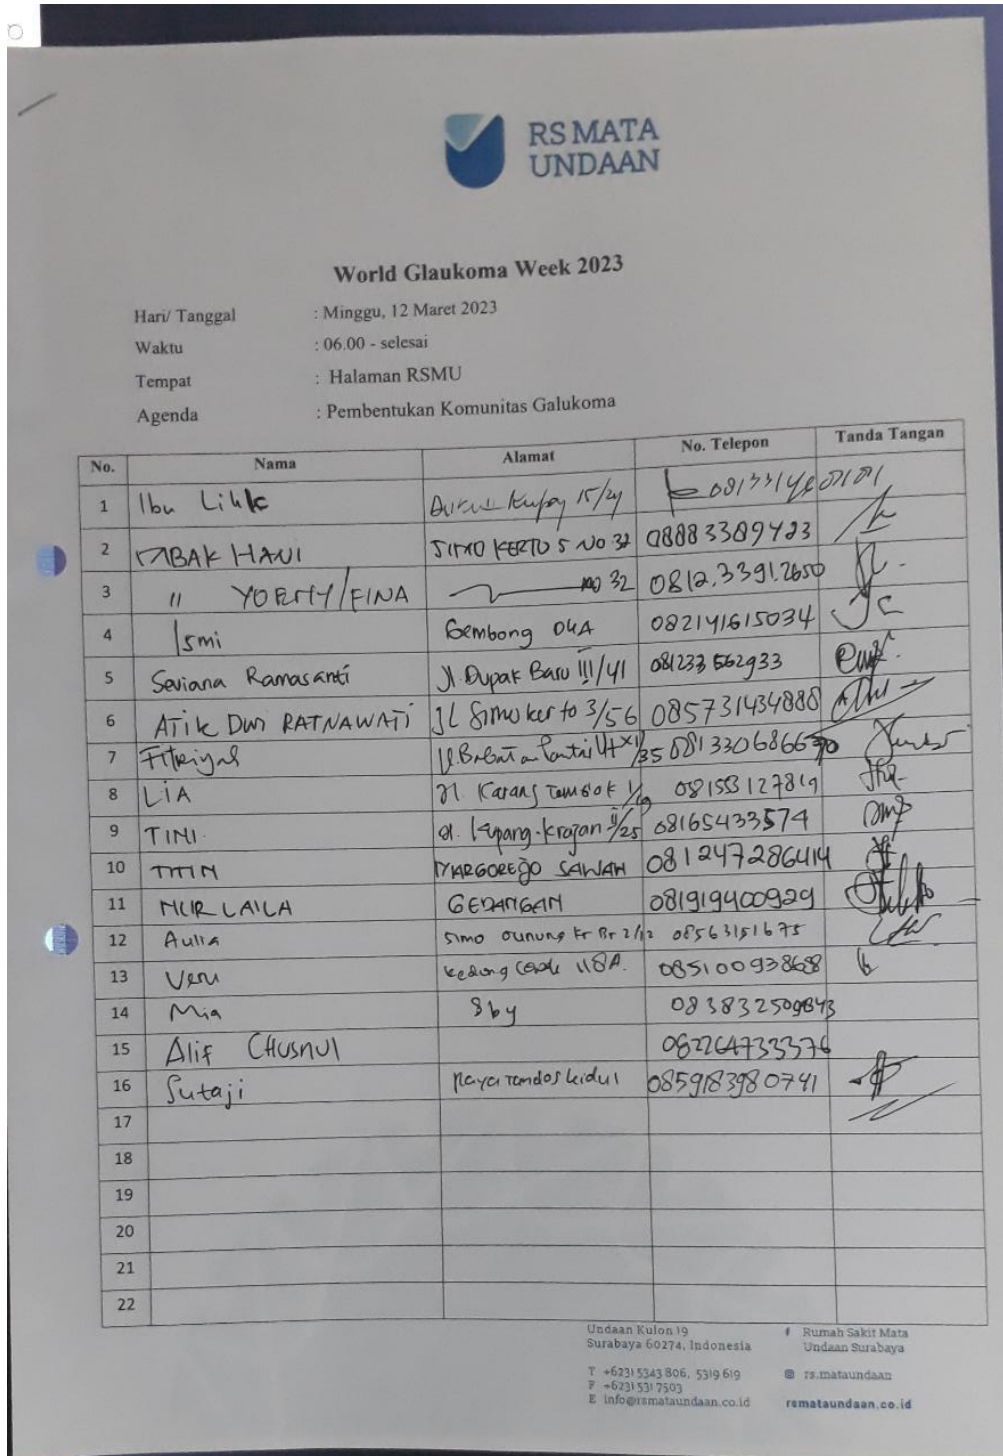 RS MATA
UNDAAN
World Glaukoma Week 2023
Hari/ Tanggal : Minggu, 12 Maret 2023
Waktu : 06.00 - selesai
Tempat : Halaman RSMU
Agenda : Pembentukan Komunitas Galukoma
No. Nama Alamat No. Telepon Tanda Tangan
1 Ibu Lilik 15/24
2 MBAK HANI SIMO KERTO 5 NO 32 08883389423
3 " YOENY/FINA NO 32 0812.3391.2650
4 Ismi Gembong DKA 082141615034
5 Seviana Ramasanti Jl. Dupak Baru III/41 081233 562933
6 ATIK DWI RATNAWATI JL Simokerto 3/56 085731434888
7 Fitriyah
8 LIA Jl. Karang 081553127819
9 TINI. Jl. Kupang-Krajan 08165433574
10 TITIN MARGOREJO SAWAH 081247286414
11 NUR LAILA GEDANGAN 081919400929
12 Aulia Simo Gunung Kr Br 2/12 08563151675
13 Veni Kedung 118A. 085100938688
14 Mia Sby
15 Alif CHUSNUL 082264733376
16 Sutaji Raya Tandes Kidul 0859183980741
17
18
19
20
21
22
Undaan Kulon 19
Surabaya 60274, Indonesia
T +6231 5343 806, 5319 619
F +6231 531 7503
E info@rsmataundaan.co.id
Rumah Sakit Mata
Undaan Surabaya
rs.mataundaan
rsmataundaan.co.id